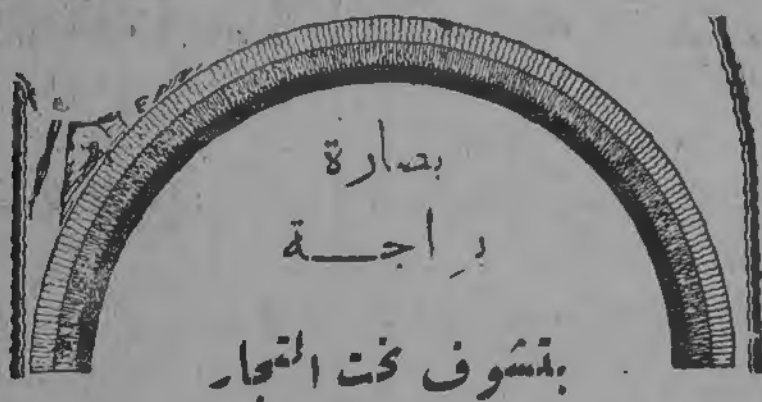 بصارة
براجة
بتشوف بخت التجار